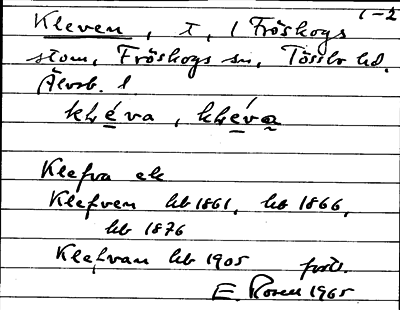 1-2
Kleven, t, i Fröskogs
stom, Fröskogs sn, Tössbo hd.
Älvsb. l
kléva, kléva
Klefva ek
Klefven hb 1861, hb 1866,
hb 1876
Klefvan hb 1905 forts.
E. Rosell 1965